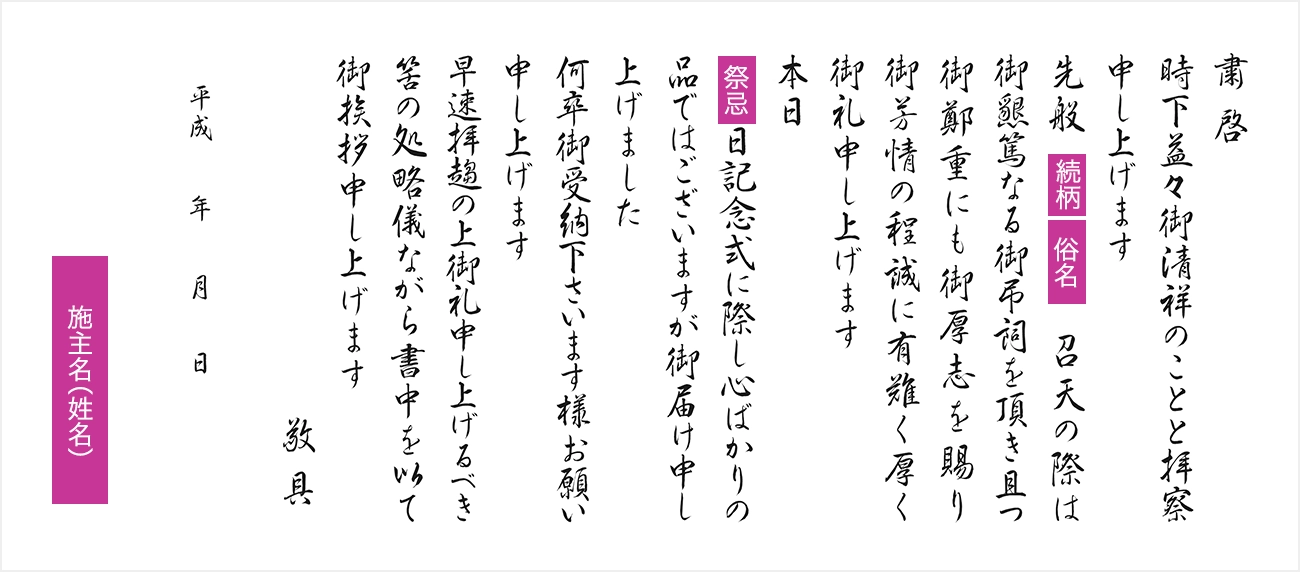 粛啓
時下益々御清祥のことと拝察
申し上げます
先般 続柄 俗名 召天の際は
御懇篤なる御弔詞を頂き且つ
御鄭重にも御厚志を賜り
御芳情の程誠に有難く厚く
御礼申し上げます
本日
祭忌日記念式に際し心ばかりの
品ではございますが御届け申し
上げました
何卒御受納下さいます様お願い
申し上げます
早速拝趨の上御礼申し上げるべき
筈の処略儀ながら書中を以て
御挨拶申し上げます
敬具
平成 年 月 日
施主名(姓名)